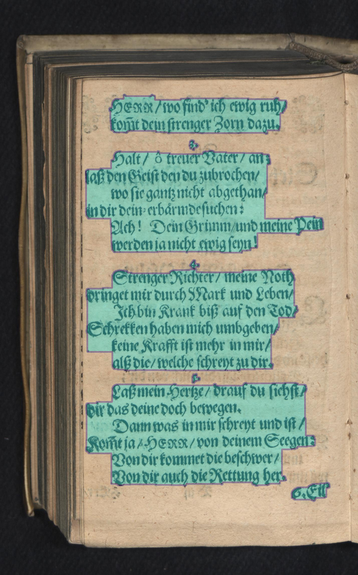 HERR / wo find' ich ewig ruh /
kom̃t dein strenger Zorn dazu.
3.
Halt / ô treuer Vater / an:
laß den Geist den du zubrochen /
wo sie gantz nicht abgethan /
in dir dein-erbarm̃de suchen:
Ach! Dein Grimm / und meine Pein
werden ja nicht ewig seyn!
4.
Strenger Richter / meine Noth
dringet mir durch Mark und Leben /
Ich bin Krank biß auf den Tod /
Schrekken haben mich umbgeben /
keine Krafft ist mehr in mir /
alß die / welche schreyt zu dir.
5.
Laß mein Hertze / drauf du siehst /
dir das deine doch bewegen.
Dann was in mir schreyt und ist /
Kom̃t ja / HERR / von deinem Seegen:
Von dir kommet die beschwer /
Von dir auch die Rettung her.
6. Eil